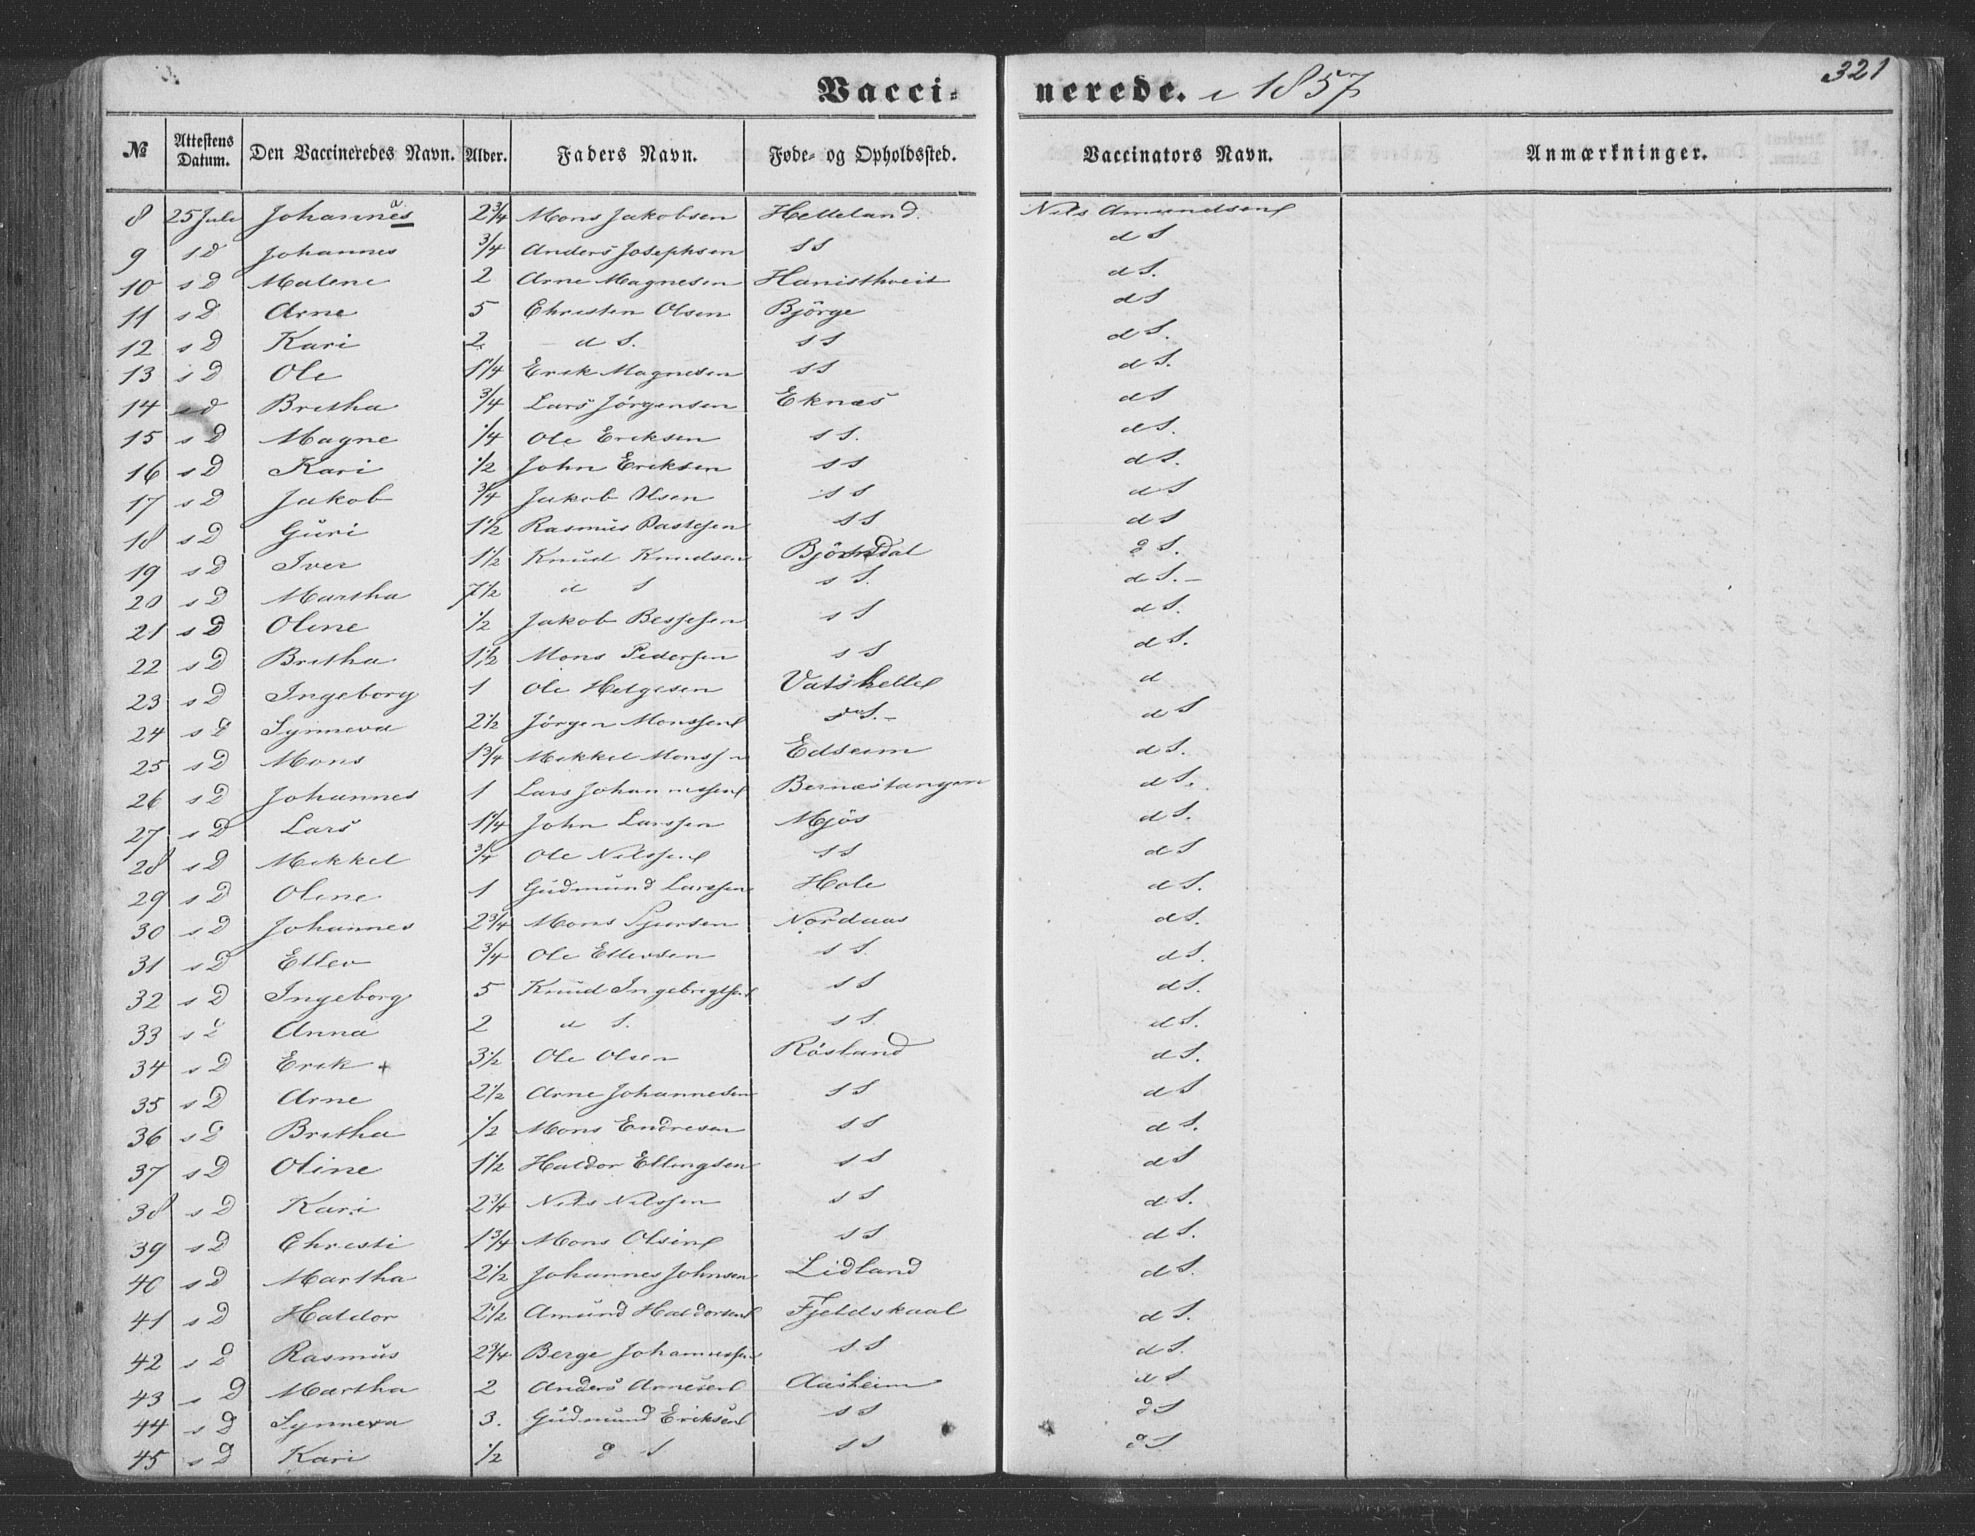 Vacci- nerede. i 1857 321
№ Attestens Datum. Den Vaccineredes Navn. Alder. Faders Navn. Føde- og Opholdssted. Vaccinators Navn. Anmærkninger.
8 25 Juli Johannes a 2 3/4 Mons Jakobsen Helleland. Nils Amundsen
9 s D Johannes 3/4 Anders Josephsen s s d S
10 s D Malene 2 Arne Magnesen Hanisthveit d S.
11 s D Arne 5 Christen Olsen Björge d S
12 s D Kari 2 d S. s s d S.
13 s D Ole 1 1/4 Erik Magnesen s s d S.
14 s d Britha 3/4 Lars Jörgensen Eknæs d S
15 s D Magne 1/4 Ole Eriksen s s. d S.
16 s D Kari 1/2 John Eriksen s s d S.
17 s D Jakob 3/4 Jakob Olsen s s d S
18 s D Guri 1 1/2 Rasmus s s d S
19 s D Iver 1 1/2 Knud Knudsen Björndal d S.
20 s D Martha 7 1/2 d S s S. d S.
21 s D Oline 1/2 Jakob s S d S.
22 s D Britha 1 1/2 Mons Pedersen s S d S.
23 s D Ingeborg 1 Ole Helgesen Vatshelle d
24 s D Synneva 2 1/2 Jörgen Monssen d S. d S
25 s D Mons 1 3/4 Mikkel Monss n Edseim d S.
26 s D Johannes 1 Lars Johannessen Bernæstangen d S.
27 s D Lars 1 1/4 John Larssen Mjös d S.
28 s D Mikkel 3/4 Ole Nilssen s s d S
29 s D Oline 1 Gudmund Larssen Hole d S.
30 s D Johannes 2 3/4 Mons Sjursen Nordaas d S.
31 s D Ellev 3/4 Ole Ellevsen s S. d S.
32 s D Ingeborg 5 Knud Ingebrigtsen s S d S.
33 s D Anna 2 d S. s S. d S.
34 s D Erik + 3 1/2 Ole Olsen Rösland d S.
35 s D Arne 2 1/2 Arne Johannesen s S d S
36 s D Britha 1/2 Mons Endresen s S d S.
37 s D Oline 1 1/2 Haldor Ellingsen s S d S
38 s D Kari 2 3/4 Nils Nilssen s S d S.
39 s D Christi 1 3/4 Mons Olsen s S d S.
40 s D Martha 2 1/2 Johannes Johnsen Lidland d S.
41 s D Haldor 2 1/2 Amund Haldorsen Fjeldskaal d S.
42 s D Rasmus 2 3/4 Berge Johannessen s S d S.
43 s D Martha 2 Anders Arnesen Aasheim d S
44 s D Synneva 3. Gudmund Eriksen s S d S
45 s D Kari 1/2 d S s S d S.